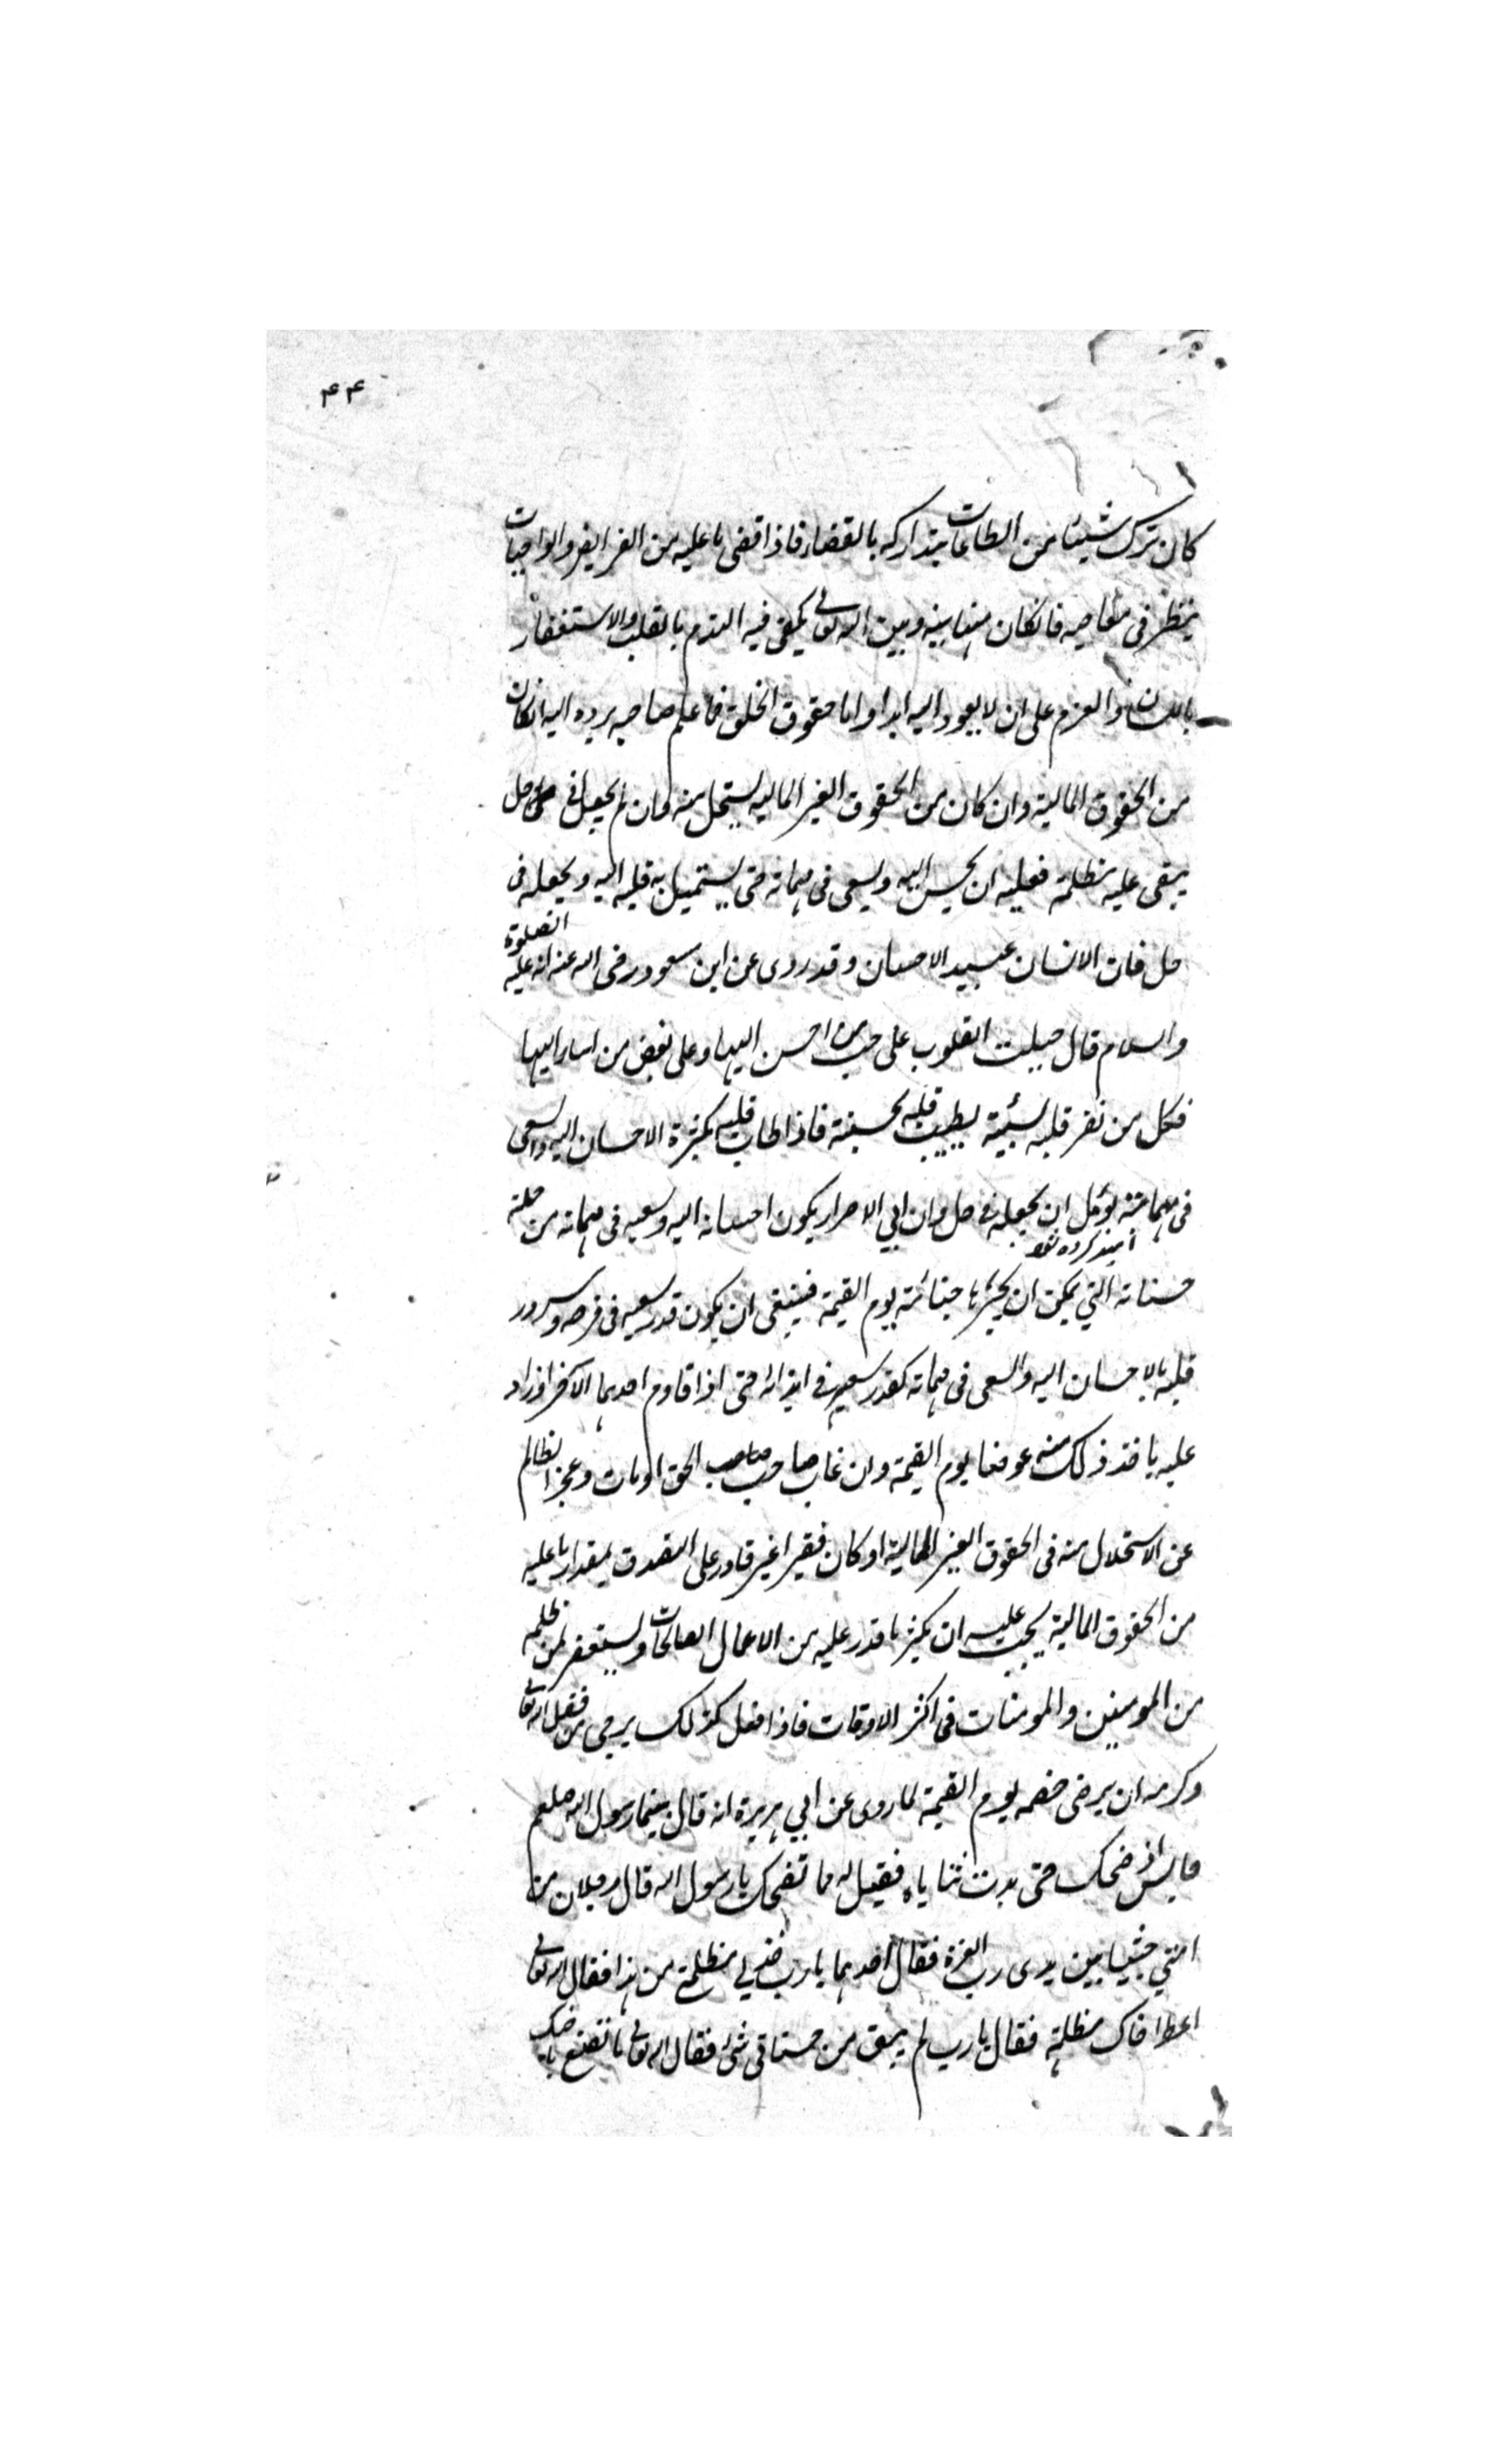 ۴۴
كان ترك شيئا من الطاعات يتداركه بالقضاء فاذا قضى ما عليه من الفرايض والواجبات
ينظر فى معاصيه فانكان منها بينه وبين الله تعالى يكفى فيه الندم بالقلب والاستغفار
باللسان والعزم على ان لا يعود اليه ابدا واما حقوق الخلق فما علم صاحبه يرده اليه انكان
من الحقوق المالية وان كان من الحقوق الغير المالية يستحل منه وان لم يجعل فى حل
يبقى عليه مظلمة فعليه ان يحسن اليه ويسعى فى مهماته حتى يستميل به قلبه اليه ويجعله فى
حل فان الانسان عبيد الاحسان وقد روى عن ابن مسعود رضى الله عنه انه عليه الصلوة
والسلام قال جبلت القلوب على حب من احسن اليها وعلى بغض من اساء اليها
فكل من نفر قلبه بسيئة يطيب قلبه بحسنة فاذا طاب قلبه بكثرة الاحسان اليه والسعى
فى مهماته يؤمل ان يجعله فى حل وان ابى الاصرار يكون احسانه اليه وسعيه فى مهماته من جملة
اميد كرده شود
حسناته التي يمكن ان يجبر بها جنايته يوم القيمة فينبغى ان يكون قدر سعيه فى فرحه وسرور
قلبه بالاحسان اليه والسعى فى مهماته كقدر سعيه فى ايذائه حتى اذا قاوم احدهما الاخر او زاد
عليه ياخذ ذلك منه عوضا يوم القيمة وان غاب صاحب صاحب الحق او مات وعجز الظالم
عن الاستحلال منه فى الحقوق الغير المالية او كان فقيرا غير قادر على التصدق بمقدار ما عليه
من الحقوق المالية يجب عليه ان يكثر ما قدر عليه من الاعمال الصالحات ويستغفر لمن ظلمه
من المومنين والمومنات فى اكثر الاوقات فاذا فعل كذلك يرجى من فضل الله تعالى
وكرمه ان يرضى خصمه يوم القيمة لما روى عن ابي هريرة انه قال بينما رسول الله صلعم
جالس اذ ضحك حتى بدت ثناياه فقيل له مما تضحك يا رسول الله قال رجلان من
امتي جثيا بين يدى رب العزة فقال احدهما يا رب خذ لي مظلمتي من هذا فقال الله تعالى
اعط اخاك مظلمته فقال يا رب لم يبق من حسناتي شئ فقال الله تعالى ما تصنع باخيك